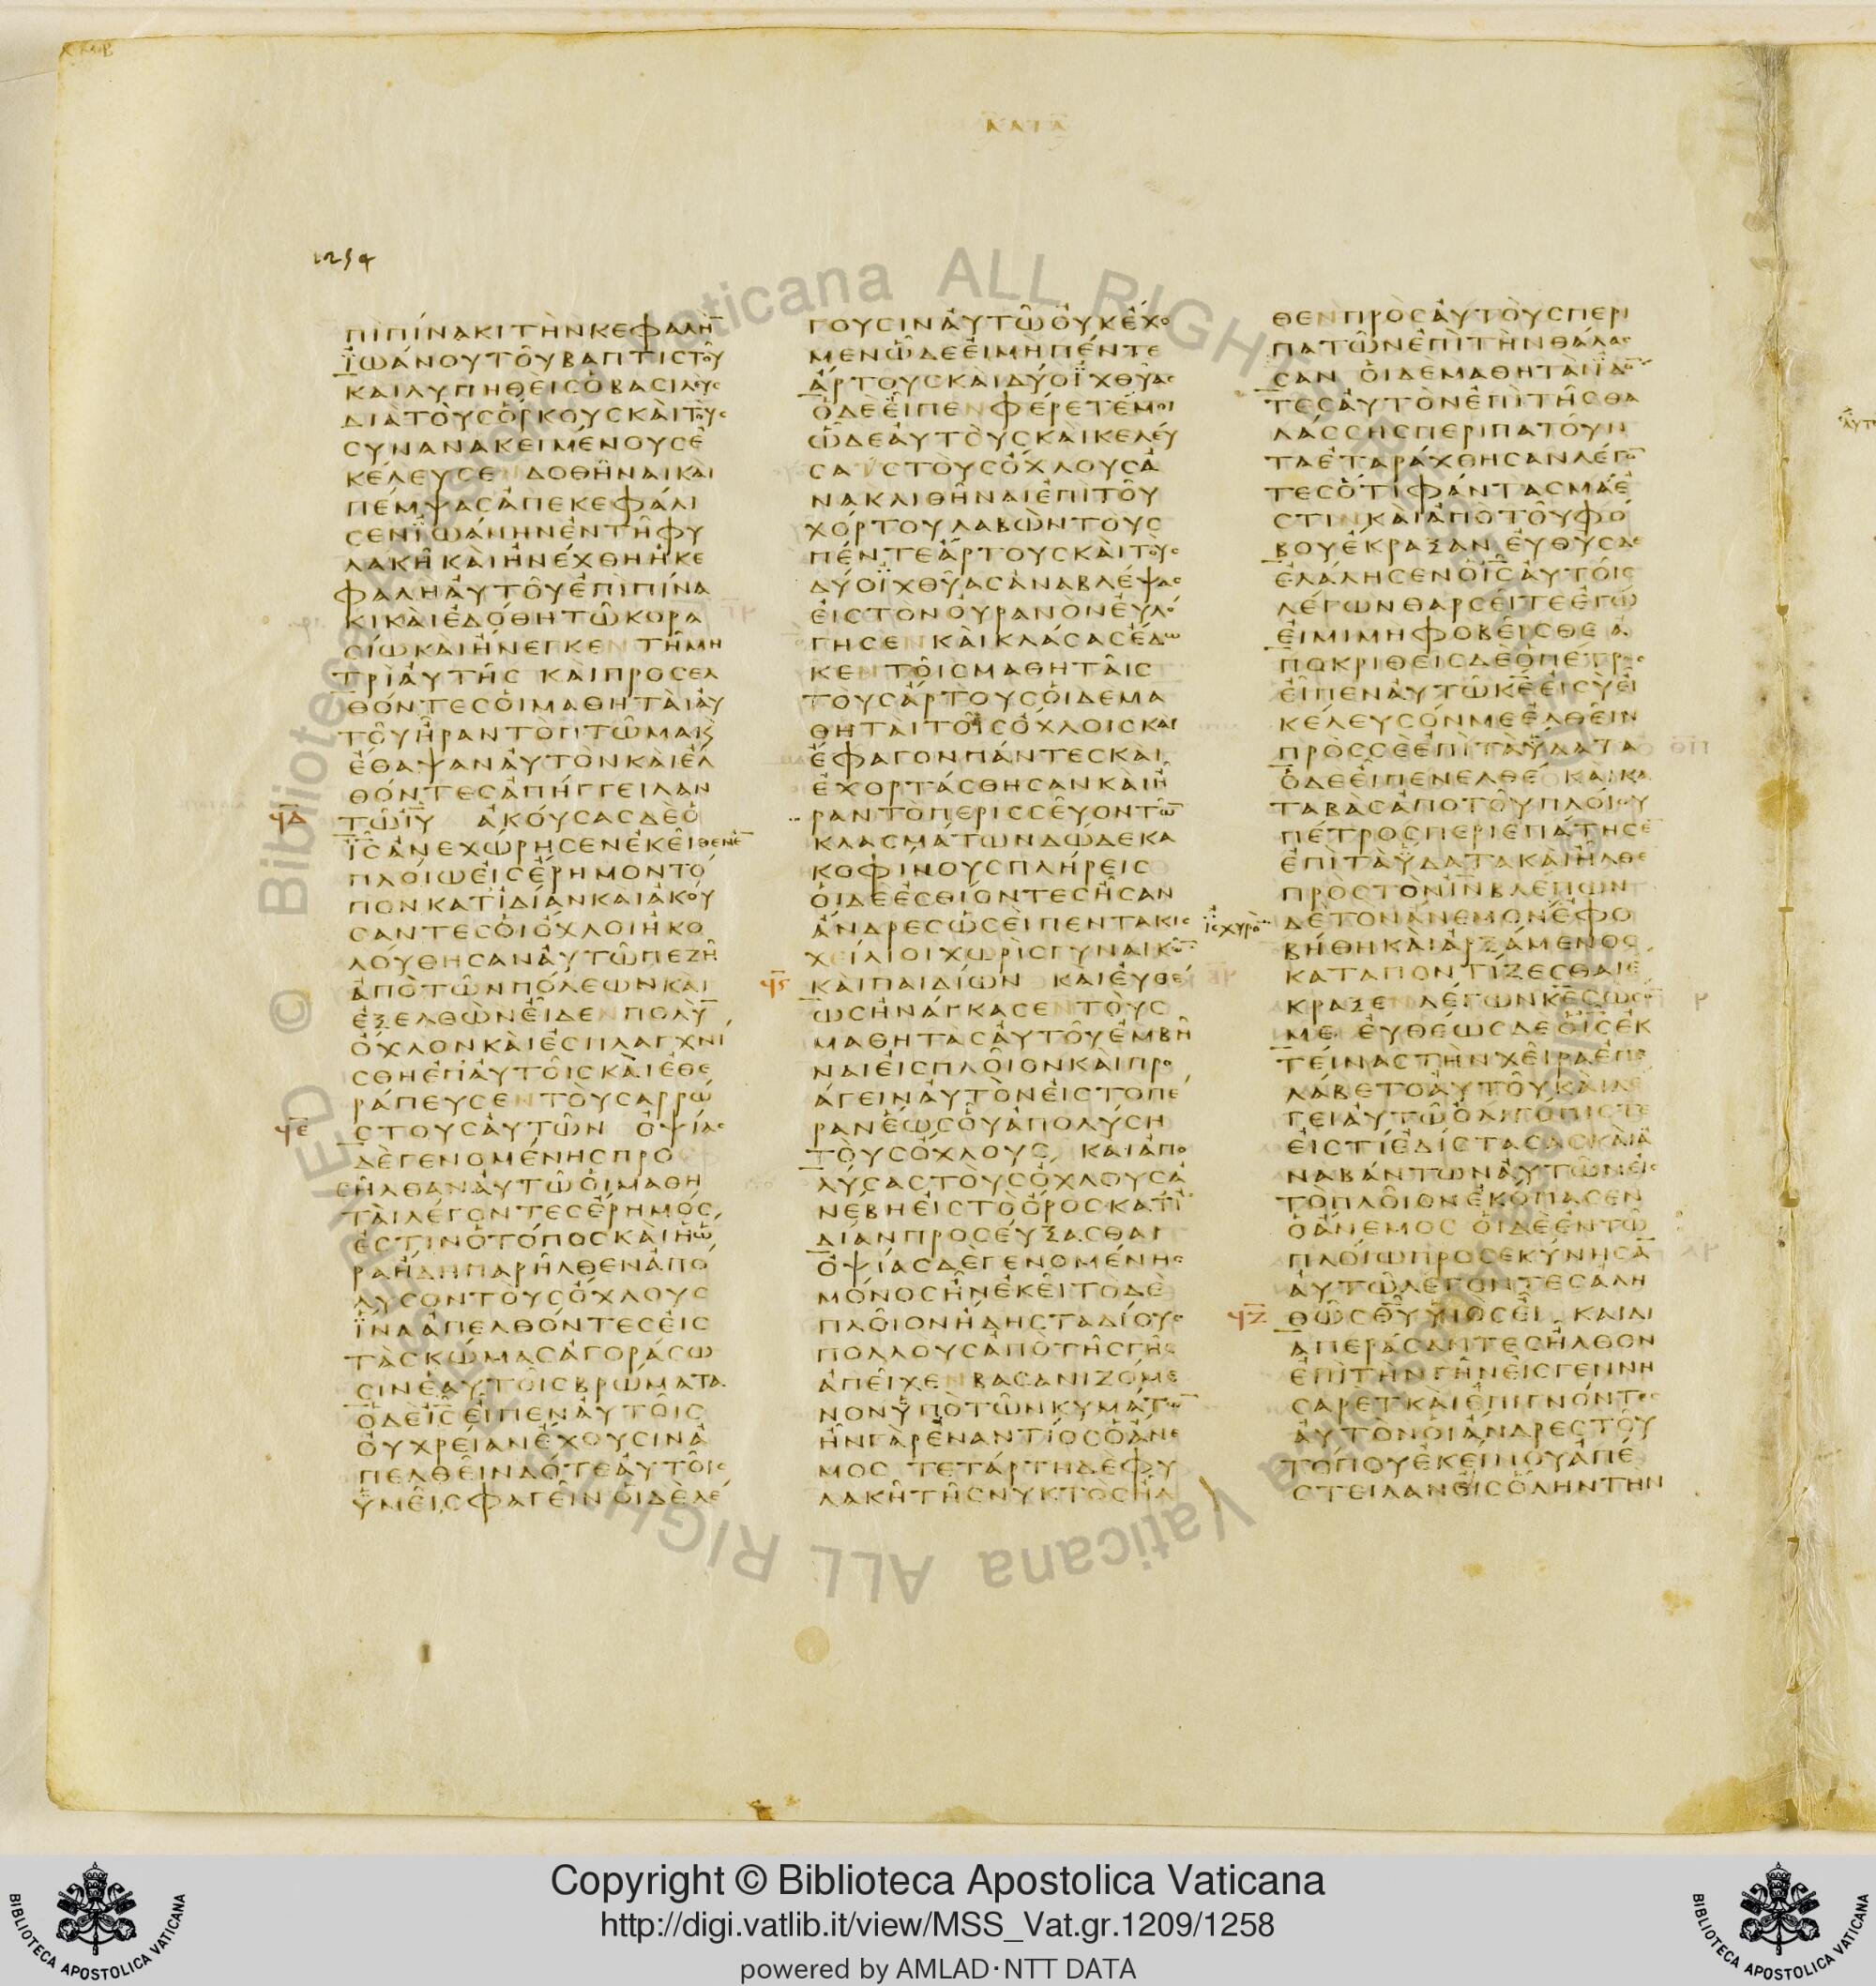 ΚΑΤΑ
1254
ΠΙΠΙΝΑΚΙΤΗΝΚΕΦΑΛΗ̅
ΪΩΑΝΟΥΤΟΥΒΑΠΤΙΣΤΟΥ
ΚΑΙΛΥΠΗΘΕΙΣΟΒΑΣΙΛΕΥΣ
ΔΙΑΤΟΥΣΟΡΚΟΥΣΚΑΙΤΟΥΣ
ΣΥΝΑΝΑΚΕΙΜΕΝΟΥΣΕ
ΚΕΛΕΥΣΕΝ ΔΟΘΗΝΑΙΚΑΙ
ΠΕΜΨΑΣΑΠΕΚΕΦΑΛΙ
ΣΕΝΪΩΑΝΗΝΕΝΤΗΦΥ
ΛΑΚΗΚΑΙΗΝΕΧΘΗΗΚΕ
ΦΑΛΗΑΥΤΟΥΕΠΙΠΙΝΑ
ΚΙΚΑΙΕΔΟΘΗΤΩΚΟΡΑ
ΣΙΩΚΑΙΗΝΕΓΚΕΝ ΤΗΜΗ
ΤΡΙΑΥΤΗΣ ΚΑΙΠΡΟΣΕΛ
ΘΟΝΤΕΣΟΙΜΑΘΗΤΑΙΑΥ
ΤΟΥΗΡΑΝΤΟΠΤΩΜΑΚΑΙ
ΕΘΑΨΑΝΑΥΤΟΝΚΑΙΕΛ
ΘΟΝΤΕΣΑΠΗΓΓΕΙΛΑΝ
ϤΔ ΤΩΙ̅Υ̅ ΑΚΟΥΣΑΣΔΕΟ
Ι̅Σ̅ΑΝΕΧΩΡΗΣΕΝΕΚΕΙΘΕΝΕ̅
ΠΛΟΙΩΕΙΣΕΡΗΜΟΝΤΟ
ΠΟΝΚΑΤΙΔΙΑΝΚΑΙΑΚΟΥ
ΣΑΝΤΕΣΟΙΟΧΛΟΙΗΚΟ
ΛΟΥΘΗΣΑΝΑΥΤΩΠΕΖΗ
ΑΠΟΤΩΝΠΟΛΕΩΝΚΑΙ
ΕΞΕΛΘΩΝΕΙΔΕΝ ΠΟΛΥ̅
ΟΧΛΟΝΚΑΙΕΣΠΛΑΓΧΝΙ
ΣΘΗΕΠΑΥΤΟΙΣΚΑΙΕΘΕ
ΡΑΠΕΥΣΕΝ ΤΟΥΣΑΡΡΩ
ϤΕ ΣΤΟΥΣΑΥΤΩΝ ΟΨΙΑΣ
ΔΕΓΕΝΟΜΕΝΗΣΠΡΟ
ΣΗΛΘΑΝΑΥΤΩΟΙΜΑΘΗ
ΤΑΙΛΕΓΟΝΤΕΣΕΡΗΜΟΣ
ΕΣΤΙΝΟΤΟΠΟΣΚΑΙΗΩ
ΡΑΗΔΗΠΑΡΗΛΘΕΝΑΠΟ
ΛΥΣΟΝΤΟΥΣΟΧΛΟΥΣ
ΪΝΑΑΠΕΛΘΟΝΤΕΣΕΙΣ
ΤΑΣΚΩΜΑΣΑΓΟΡΑΣΩ
ΣΙΝΕΑΥΤΟΙΣΒΡΩΜΑΤΑ
ΟΔΕΙ̅Σ̅ΕΙΠΕΝΑΥΤΟΙΣ
ΟΥΧΡΕΙΑΝΕΧΟΥΣΙΝΑ
ΠΕΛΘΕΙΝΔΟΤΕΑΥΤΟΙΣ
ΫΜΕΙΣΦΑΓΕΙΝΟΙΔΕΛΕ
ΓΟΥΣΙΝΑΥΤΩΟΥΚΕΧΟ
ΜΕΝΩΔΕΕΙΜΗΠΕΝΤΕ
ΑΡΤΟΥΣΚΑΙΔΥΟΪΧΘΥΑΣ
ΟΔΕΕΙΠΕΝ ΦΕΡΕΤΕΜΟΙ
ΩΔΕΑΥΤΟΥΣΚΑΙΚΕΛΕΥ
ΣΑΣΤΟΥΣΟΧΛΟΥΣΑ
ΝΑΚΛΙΘΗΝΑΙΕΠΙΤΟΥ
ΧΟΡΤΟΥΛΑΒΩΝΤΟΥΣ
ΠΕΝΤΕΑΡΤΟΥΣΚΑΙΤΟΥΣ
ΔΥΟΪΧΘΥΑΣΑΝΑΒΛΕΨΑΣ
ΕΙΣΤΟΝΟΥΡΑΝΟΝΕΥΛΟ
ΓΗΣΕΝ ΚΑΙΚΛΑΣΑΣΕΔΩ
ΚΕΝ ΤΟΙΣΜΑΘΗΤΑΙΣ
ΤΟΥΣΑΡΤΟΥΣΟΙΔΕΜΑ
ΘΗΤΑΙΤΟΙΣΟΧΛΟΙΣΚΑΙ
ΕΦΑΓΟΝΠΑΝΤΕΣΚΑΙ
ΕΧΟΡΤΑΣΘΗΣΑΝΚΑΙΗ
ΡΑΝΤΟΠΕΡΙΣΣΕΥΟΝΤΩ̅
ΚΛΑΣΜΑΤΩΝΔΩΔΕΚΑ
ΚΟΦΙΝΟΥΣΠΛΗΡΕΙΣ
ΟΙΔΕΕΣΘΙΟΝΤΕΣΗΣΑΝ
ΑΝΔΡΕΣΩΣΕΙΠΕΝΤΑΚΙΣ
ΧΕΙΛΙΟΙΧΩΡΙΣΓΥΝΑΙΚΩ̅
ϤϚ ΚΑΙΠΑΙΔΙΩΝ ΚΑΙΕΥΘΕ
ΩΣΗΝΑΓΚΑΣΕΝ ΤΟΥΣ
ΜΑΘΗΤΑΣΑΥΤΟΥΕΜΒΗ
ΝΑΙΕΙΣΠΛΟΙΟΝΚΑΙΠΡΟ
ΑΓΕΙΝΑΥΤΟΝΕΙΣΤΟΠΕ
ΡΑΝΕΩΣΟΥΑΠΟΛΥΣΗ
ΤΟΥΣΟΧΛΟΥΣ ΚΑΙΑΠΟ
ΛΥΣΑΣΤΟΥΣΟΧΛΟΥΣΑ
ΝΕΒΗΕΙΣΤΟΟΡΟΣΚΑΤΙ
ΔΙΑΝΠΡΟΣΕΥΞΑΣΘΑΙ
ΟΨΙΑΣΔΕΓΕΝΟΜΕΝΗΣ
ΜΟΝΟΣΗΝΕΚΕΙΤΟΔΕ
ΠΛΟΙΟΝΗΔΗΣΤΑΔΙΟΥΣ
ΠΟΛΛΟΥΣΑΠΟΤΗΣΓΗΣ
ΑΠΕΙΧΕΝ ΒΑΣΑΝΙΖΟΜΕ
ΝΟΝΫΠΟΤΩΝΚΥΜΑΤΩ̅
ΗΝΓΑΡΕΝΑΝΤΙΟΣΟΑΝΕ
ΜΟΣ ΤΕΤΑΡΤΗΔΕΦΥ
ΛΑΚΗΤΗΣΝΥΚΤΟΣΗΛ
ΘΕΝΠΡΟΣΑΥΤΟΥΣΠΕΡΙ
ΠΑΤΩΝΕΠΙΤΗΝΘΑΛΑΣ
ΣΑΝ ΟΙΔΕΜΑΘΗΤΑΙΪΔΟ̅
ΤΕΣΑΥΤΟΝΕΠΙΤΗΣΘΑ
ΛΑΣΣΗΣΠΕΡΙΠΑΤΟΥΝ
ΤΑΕΤΑΡΑΧΘΗΣΑΝΛΕΓΟ̅
ΤΕΣΟΤΙΦΑΝΤΑΣΜΑΕ
ΣΤΙΝΚΑΙΑΠΟΤΟΥΦΟ
ΒΟΥΕΚΡΑΞΑΝ ΕΥΘΥΣΔΕ
ΕΛΑΛΗΣΕΝΟΙ̅Σ̅ΑΥΤΟΙΣ
ΛΕΓΩΝΘΑΡΣΕΙΤΕΕΓΩ
ΕΙΜΙΜΗΦΟΒΕΙΣΘΕ Α
ΠΟΚΡΙΘΕΙΣΔΕΟΠΕΤΡΟΣ
ΕΙΠΕΝΑΥΤΩΚ̅Ε̅ΕΙΣΥΕΙ
ΚΕΛΕΥΣΟΝΜΕΕΛΘΕΙΝ
ΠΡΟΣΣΕΕΠΙΤΑΫΔΑΤΑ
ΟΔΕΕΙΠΕΝΕΛΘΕ ΚΑΙΚΑ
ΤΑΒΑΣΑΠΟΤΟΥΠΛΟΙΟΥ
ΠΕΤΡΟΣΠΕΡΙΕΠΑΤΗΣΕ̅
ΕΠΙΤΑΫΔΑΤΑΚΑΙΗΛΘΕ
ΠΡΟΣΤΟΝΙ̅Ν̅ΒΛΕΠΩΝ
ΙΣΧΥΡΟΝ ΔΕΤΟΝΑΝΕΜΟΝΕΦΟ
ΒΗΘΗΚΑΙΑΡΞΑΜΕΝΟΣ
ΚΑΤΑΠΟΝΤΙΖΕΣΘΑΙΕ
ΚΡΑΞΕΝ ΛΕΓΩΝΚ̅Ε̅ΣΩΣΟ̅
ΜΕ ΕΥΘΕΩΣΔΕΟΙ̅Σ̅ΕΚ
ΤΕΙΝΑΣΤΗΝΧΕΙΡΑΕΠΕ
ΛΑΒΕΤΟΑΥΤΟΥΚΑΙΛΕ
ΓΕΙΑΥΤΩΟΛΙΓΟΠΙΣΤΕ
ΕΙΣΤΙΕΔΙΣΤΑΣΑΣΚΑΙΑ
ΝΑΒΑΝΤΩΝΑΥΤΩΝΕΙΣ
ΤΟΠΛΟΙΟΝΕΚΟΠΑΣΕΝ
ΟΑΝΕΜΟΣ ΟΙΔΕΕΝΤΩ
ΠΛΟΙΩΠΡΟΣΕΚΥΝΗΣΑ̅
ΑΥΤΩΛΕΓΟΝΤΕΣΑΛΗ
ϤΖ ΘΩΣΘ̅Υ̅ΥΙΟΣΕΙ ΚΑΙΔΙ
ΑΠΕΡΑΣΑΝΤΕΣΗΛΘΟΝ
ΕΠΙΤΗΝΓΗΝΕΙΣΓΕΝΝΗ
ΣΑΡΕΤΚΑΙΕΠΙΓΝΟΝΤΕΣ
ΑΥΤΟΝΟΙΑΝΔΡΕΣΤΟΥ
ΤΟΠΟΥΕΚΕΙΝΟΥΑΠΕ
ΣΤΕΙΛΑΝΕΙΣΟΛΗΝΤΗΝ
Copyright © Biblioteca Apostolica Vaticana
http://digi.vatlib.it/view/MSS_Vat.gr.1209/1258
powered by AMLAD·NTT DATA
BIBLIOTECA APOSTOLICA VATICANA
BIBLIOTECA APOSTOLICA VATICANA